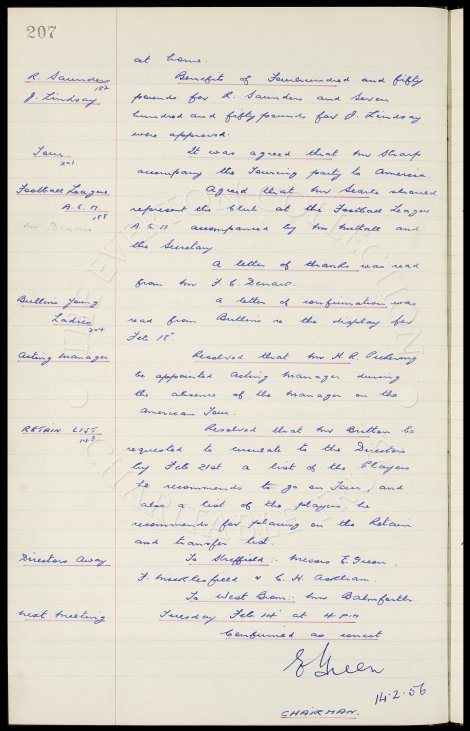 207
at home.
R. Saunders 182
J. Lindsay
Benefits of Fourhundred and fifty
pounds for R. Saunders and seven
hundred and fifty pounds for J. Lindsay
were approved.
Tour 201
It was agreed that Mr Sharp
accompany the Touring party to America.
Football League
A.G.M 188
Agreed that Mr Searle should
represent the Club at the Football League
A.G.M accompanied by Mr Nuttall and
the Secretary
Mr. Denaro
A letter of thanks was read
from Mr F. C. Denaro.
Butlins Young
Ladies 204
A letter of confirmation was
read from Butlins re the display for
Feb 15.
Acting Manager
Resolved that Mr H. R. Pickering
be appointed Acting Manager during
the absence of the manager on the
American Tour.
RETAIN LIST 148
Resolved that Mr Britton be
requested to circulate to the Directors
by Feb 21st a list of the Players
he recommends to go on Tour, and
also a list of the players he
recommends for placing on the Retain
and transfer list.
Directors Away
To Sheffield:- Messrs E. Green.
F. Micklesfield & C. H. Askham.
To West Brom:- Mr Balmforth.
Next Meeting
Tuesday Feb 14 at 4 p.m
Confirmed as correct
E Green
14-2-56
CHAIRMAN.
THE EVERTON COLLECTION
CHARITABLE TRUST